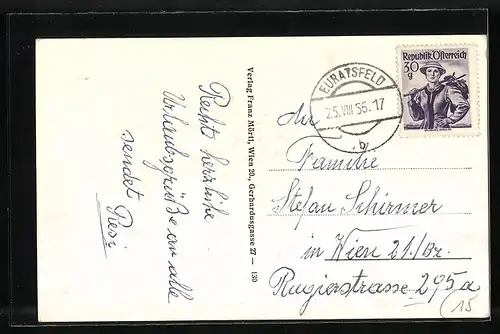 Recht herzliche
Urlaubsgrüße an alle
sendet Resi
Verlag Franz Mörtl, Wien 20, Gerhardusgasse 27 — 130
EURATSFELD
25.VIII 56.17
b
Republik Österreich
30
g
An
Familie
Stefan Schirmer
in Wien 21./Br.
Rugierstrasse 295a
15